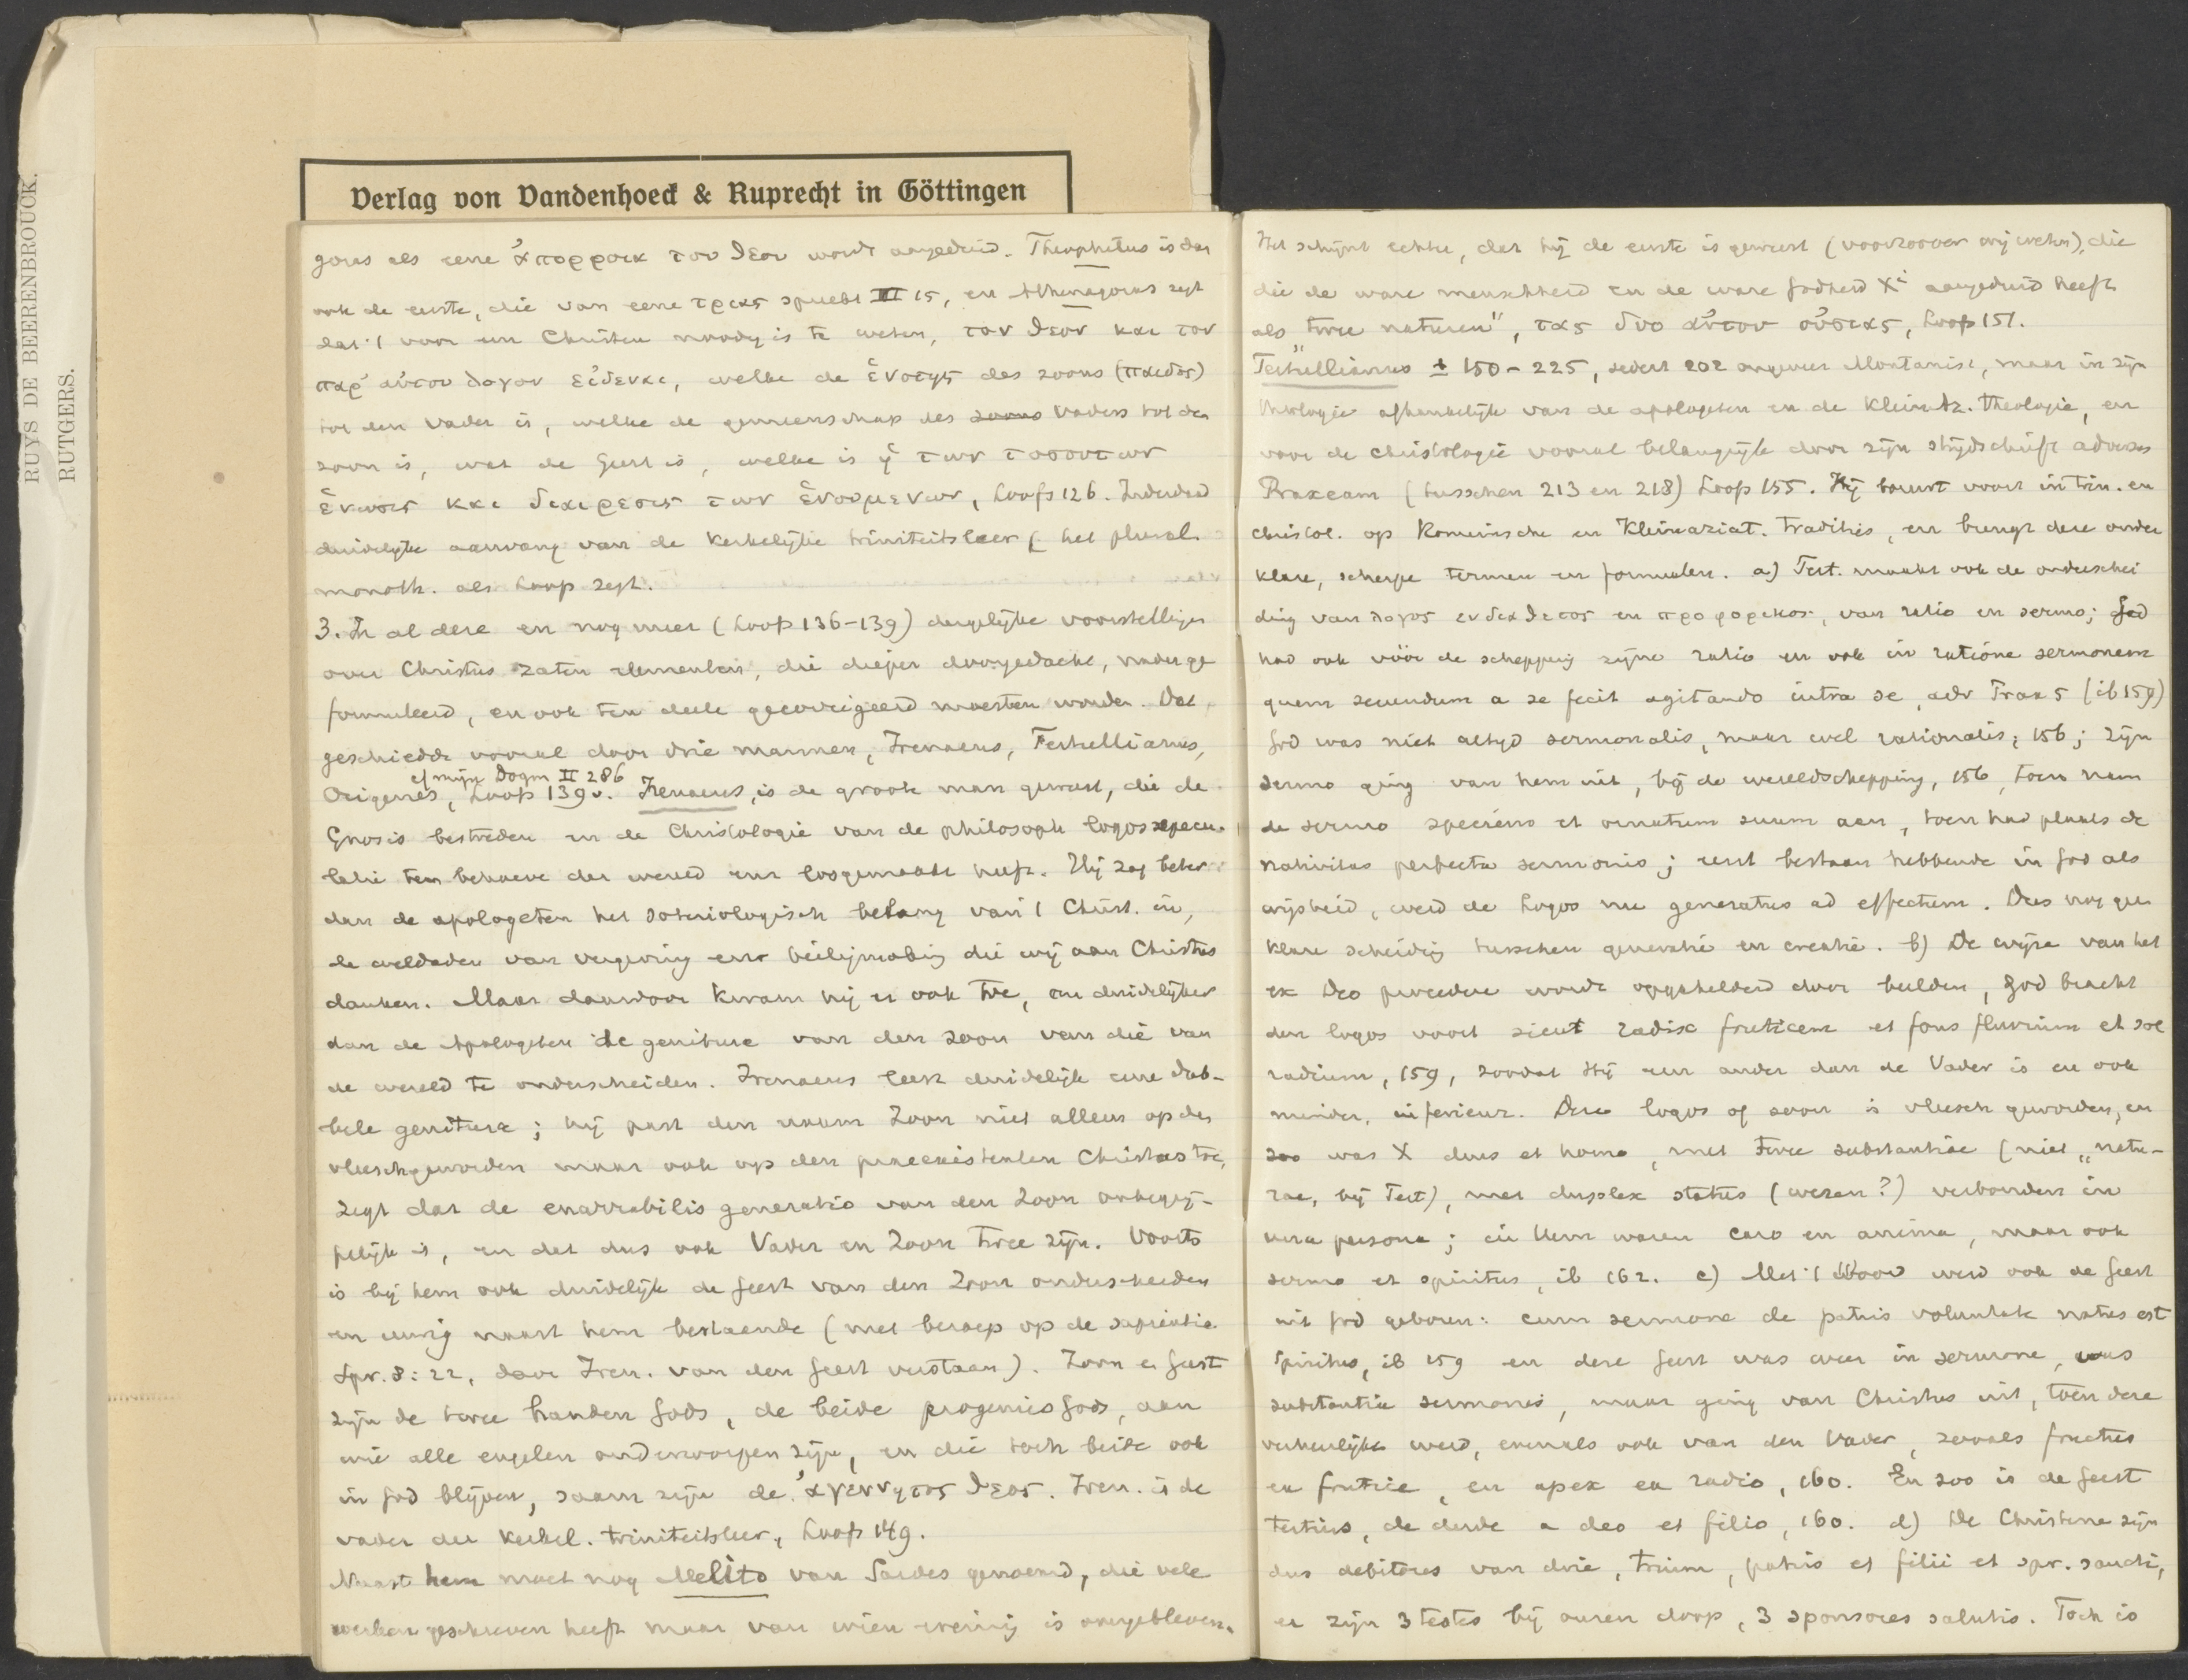 RUYS DE BEERENBROUCK.
RUTGERS.
Verlag von Vandenhoeck & Ruprecht in Göttingen
goras als eene ἀπορροια του θεου wordt aangeduid. Theophilus is dan
ook de eerste, die van eene τριας spreekt II 15, en Athenagoras zegt
dat 't voor een Christen noodig is te weten, τον θεον και τον
παρ' αὐτου λογον εἰδεναι, welke de ἑνοτης des zoons (παιδος)
tot den Vader is, welke de gemeenschap des zoons Vaders tot den
zoon is, wat de Geest is, welke is ἡ των τοσουτων
ἑνωσις και διαιρεσις των ἑνουμενων, Loofs 126. Inderdaad
duidelijke aanvang van de kerkelijke triniteitsleer, het plural.
monoth. als Loofs zegt.
3. In al deze en nog meer (Loofs 136-139) dergelijke voorstellingen
over Christus zaten elementen, die dieper doorgedacht, nader ge
formuleerd, en ook ten deele gecorrigeerd moesten worden. Dat
geschiedde vooral door drie mannen, Irenaeus, Tertullianus,
cf mijn Dogm II 286
Origenes, Loofs 139v. Irenaeus, is de groote man geweest, die de
Gnosis bestreden en de Christologie van de philosoph logosspecu-
latie ten behoeve der wereld eens losgemaakt heeft. Hij zag beter
dan de apologeten het soteriologisch belang van 't Christ. in,
de weldaden van vergeving en heiligmaking die wij aan Christus
danken. Maar daardoor kwam hij er ook toe, om duidelijker
dan de Apologeten de geniture van den zoon van die van
de wereld te onderscheiden. Irenaeus leert duidelijk eene dub-
bele geniture; hij past den naam Zoon niet alleen op den
vleeschgeworden maar ook op den praeexistenten Christus toe,
zegt dat de enarrabilis generatio van den Zoon onbegrij-
pelijk is, en dat dus ook Vader en Zoon twee zijn. Voorts
is bij hem ook duidelijk de Geest van den Zoon onderscheiden
en eeuwig naast hem bestaande (met beroep op de sapientia
Spr. 8:22, door Iren. van den Geest verstaan). Zoon en Geest
zijn de twee handen Gods, de beide progenies Gods, aan
wie alle engelen onderworpen zijn, en die toch beide ook
in God blijven, saam zijn de ἀγεννητος θεος. Iren. is de
vader der kerkel. triniteitsleer, Loofs 149.
Naast hem moet nog Melito van Sardes genoemd, die vele
werken geschreven heeft maar van wien weinig is overgebleven.
Het schijnt echter, dat hij de eerste is geweest (voorzoover wij weten), die
die de ware menschheid en de ware Godheid Xi aangeduid heeft
als „twee naturen", τας δυο αὐτου οὐσιας, Loofs 151.
Tertullianus ± 150-225, sedert 202 ongeveer Montanist, maar in zijn
theologie afhankelijk van de apologeten en de Kleinaz. theologie, en
voor de christologie vooral belangrijk door zijn strijdschrift adversus
Praxeam (tusschen 213 en 218) Loofs 155. Hij bouwt voort in trin. en
christol. op Romeinsche en Kleinaziat. traditie, en brengt deze onder
klare, scherpe termen en formulen. a) Tert. maakt ook de onderschei
ding van λογος ενδιαθετος en προφορικος, van ratio en sermo; God
had ook vóór de schepping zijne ratio en ook in ratione sermonem
quem secundum a se fecit agitando intra se, adv Prax 5 (ib 159)
God was niet altijd sermonalis, maar wel rationalis, 156; zijn
sermo ging van hem uit, bij de wereldschepping, 156, toen nam
de sermo speciem et ornatum suum aan, toen had plaats de
nativitas perfecta sermonis; eerst bestaan hebbende in God als
wijsheid, werd de Logos nu generatus ad effectum. Dus nog geen
klare scheiding tusschen generatie en creatie. b) De wijze van het
ex Deo procedere wordt opgehelderd door beelden, God bracht
den logos voort sicut radix fruticem et fons fluvium et sol
radium, 159, zoodat Hij een ander dan de Vader is en ook
minder, inferieur. Deze logos of zoon is vleesch geworden, en
zoo was X deus et homo, met twee substantiae (niet „natu-
rae, bij Tert), met duplex status (wezen?) verbonden in
una persona; in Hem waren caro en anima, maar ook
sermo et spiritus, ib 162. c) Met 't Woord werd ook de Geest
uit God geboren: cum sermone de patris voluntate natus est
Spiritus, ib 159 en deze Geest was weer in sermone, was
substantia sermonis, maar ging van Christus uit, toen deze
verheerlijkt werd, evenals ook van den Vader, zooals fructus
ex frutice, en apex ex radio, 160. En zoo is de Geest
tertius, de derde a deo et filio, 160. d) De Christenen zijn
dus debitores van drie, trium, patris et filii et spir. sancti,
er zijn 3 testes bij onzen doop, 3 sponsores salutis. Toch is